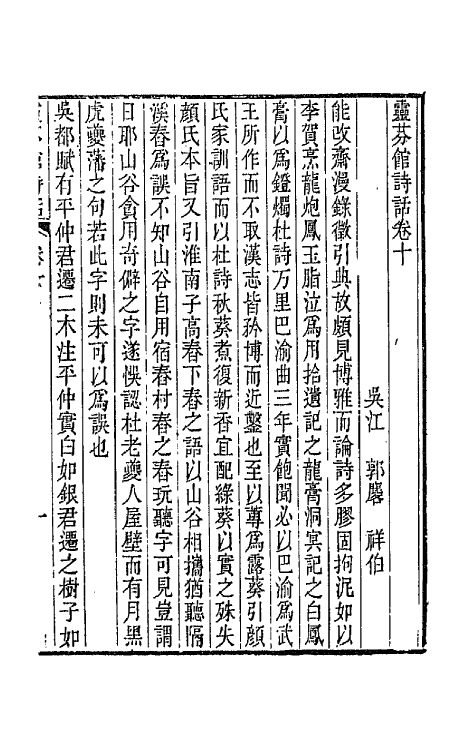 靈芬館詩話卷十
吳江　郭麐　祥伯
能改齋漫錄徵引典故頗見博雅而論詩多膠固拘泥如以
李賀烹龍炮鳳玉脂泣爲用拾遺記之龍膏洞冥記之白鳳
膏以爲鐙燭杜詩万里巴渝曲三年實飽聞必以巴渝爲武
王所作而不取漢志皆矜博而近鑿也至以蓴爲露葵引顔
氏家訓語而以杜詩秋葵煮復新香宜配綠葵以實之殊失
顔氏本旨又引淮南子高舂下舂之語以山谷相攜猶聽隔
溪舂爲誤不知山谷自用宿舂村舂之舂玩聽字可見豈謂
日耶山谷貪用奇僻之字遂悞認杜老夔人屋壁而有月黑
虎夔藩之句若此字則未可以爲誤也
吳都賦有平仲君遷二木注平仲實白如銀君遷之樹子如
一